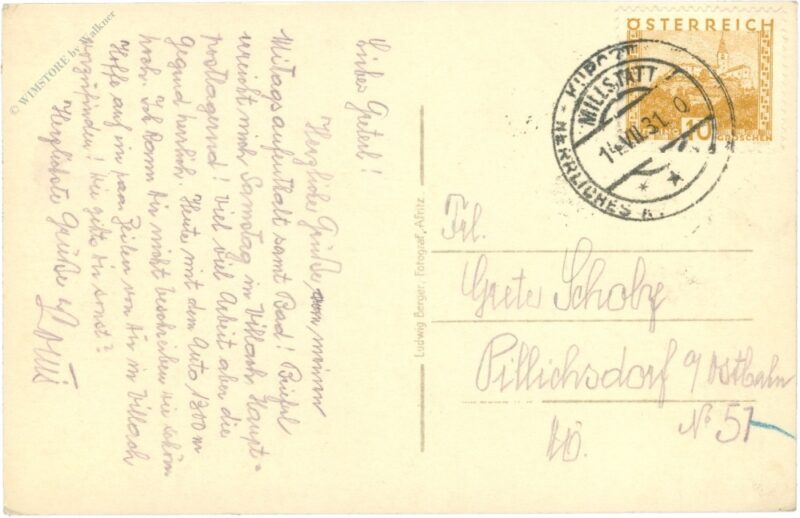 Liebes Gretel!
Herzliche Grüße, meinem
Mitagsaufenthalt samt Bad! Brieferl
erreicht mich Samstag in Villach Haupt-
postlagernd! Viel viel Arbeit aber die
Gegend herrlich. Heute mit dem Auto 1300 m
hoch. Ich kann dir nicht beschreiben wie schön
Hoffe auf ein paar Zeilen von dir in Villach
vorzufinden! Wie gehts dir sonst?
Herzlichste Grüße
Ludwig Berger, Fotograf, Afritz
ÖSTERREICH
10
GROSCHEN
KURORT
MILLSTATT
14.VII.31
HERRLICHES K.
Frl.
Grete Schoby
Pillichsdorf a/Ostbahn
No 51
NÖ.
© WIMSTORE by Walkner